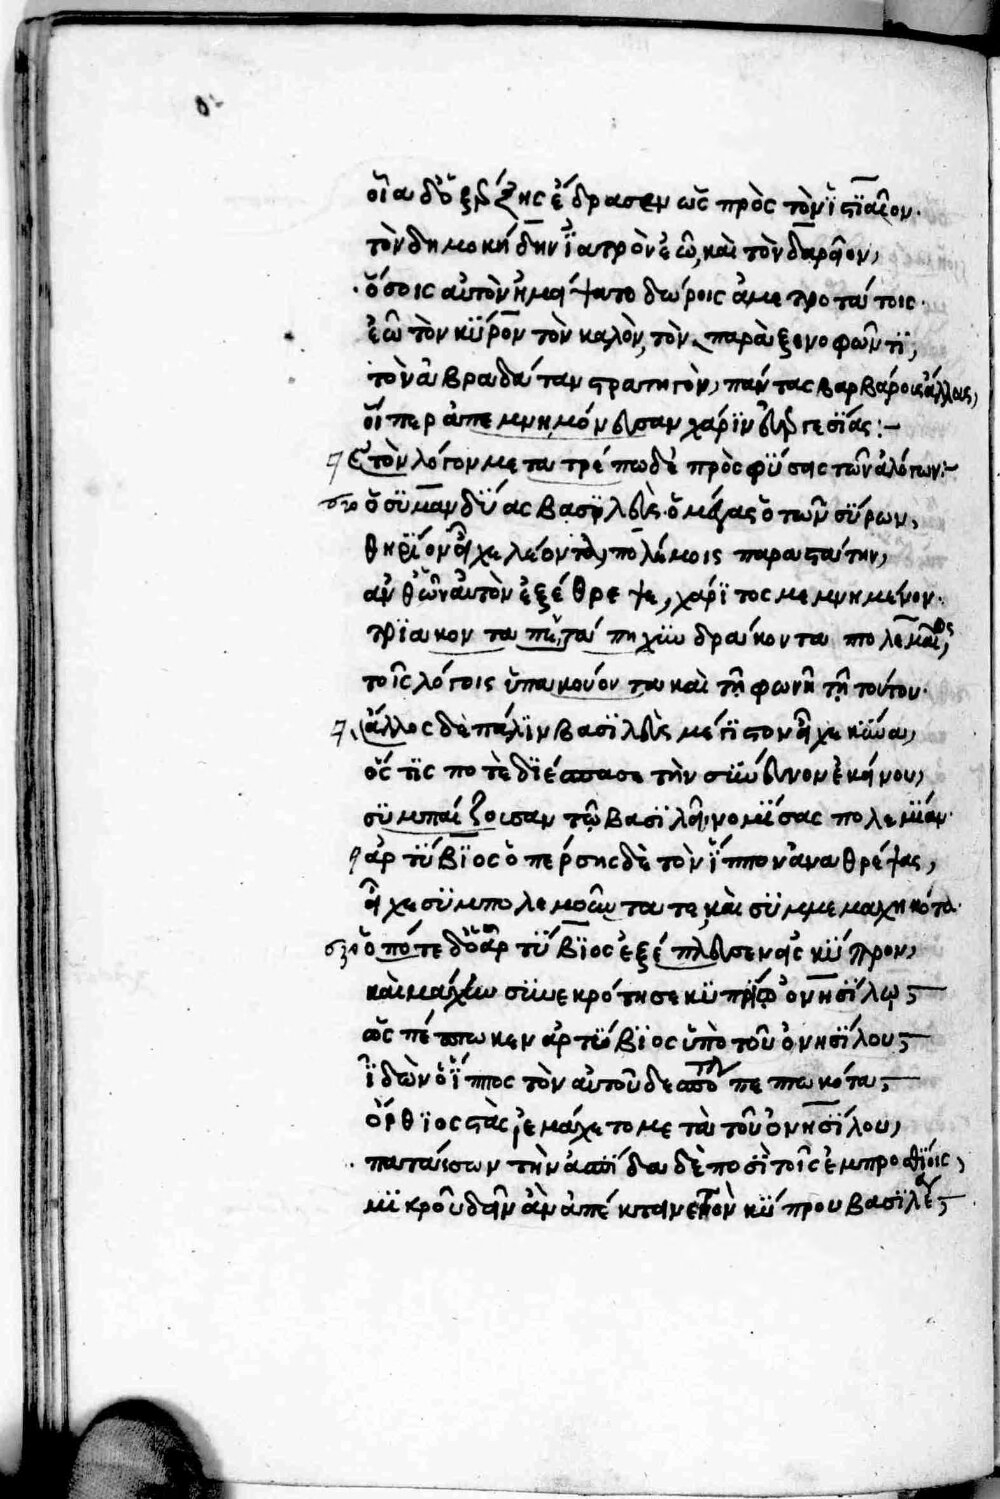 οἷα δ' ὁ ξέρξης ἔδρασεν ὡς πρὸς τὸν ἱστιαῖον.
τὸν δημοκήδην ἰατρὸν ἐῶ, καὶ τὸν δαρεῖον,
ὅσοις αὐτὸν ἠμείψατο δώροις ἀμετροτάτοις.
ἐῶ τὸν κῦρον τὸν καλὸν, τὸν παρὰ ξενοφῶντι,
τὸν ἀβραδάταν στρατηγὸν, πάντας βαρβάροις ἄλλους,
οἵπερ ἀπεμνημόνευσαν χάριν εὐεργεσίας:-
Τὸν λόγον μετατρέπω δὲ πρὸς φύσεις τῶν ἀλόγων:-
ὁ συμανδύας βασιλεὺς ὁ μέγας ὁ τῶν σύρων,
θηρίον εἶχε λέοντα, πολέμοις παραστάτην,
ἀνθ' ὧν αὐτὸν ἐξέθρεψε, χάριτος μεμνημένον.
τριακονταπεντάπηχυν δράκοντα πτολεμαῖος,
τοῖς λόγοις ὑπακούοντα καὶ τῇ φωνῇ τῇ τούτου.
ἄλλος δὲ πάλιν βασιλεὺς μέγιστον εἶχε κύνα,
ὅστις ποτὲ διέσπασε τὴν σύνευνον ἐκείνου,
συμπαίζουσαν τῷ βασιλεῖ, νομίσας πολεμίαν.
ἀρτύβιος ὁ πέρσης δὲ τὸν ἵππον ἀναθρέψας,
εἶχε συμπολεμοῦντα τε, καὶ συμμεμαχηκότα.
ὁπότε δ' ὁ ἀρτύβιος ἐξέπλευσεν εἰς κύπρον,
καὶ μάχην συνεκρότησε κυπρίῳ ὀνησίλῳ,
ὡς πέπτωκεν ἀρτύβιος ὑπὸ τοῦ ὀνησίλου,
ἰδὼν ὁ ἵππος τὸν αὐτοῦ δεσπότην πεπτωκότα,
ὄρθιος στὰς ἐμάχετο μετὰ τοῦ ὀνησίλου,
πατάσσων τὴν ἀσπίδα δὲ ποσὶ τοῖς ἐμπροσθίοις,
μικροῦ δεῖν ἂν ἀπέκτεινε τὸν κύπρου βασιλέα,